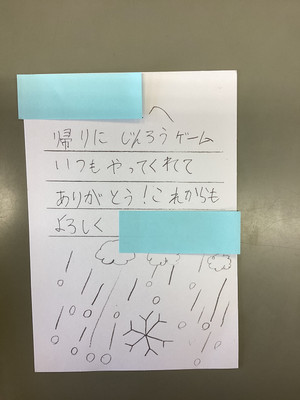 へ
帰りに じんろうゲーム
いつもやってくれてて
ありがとう！これからも
よろしく